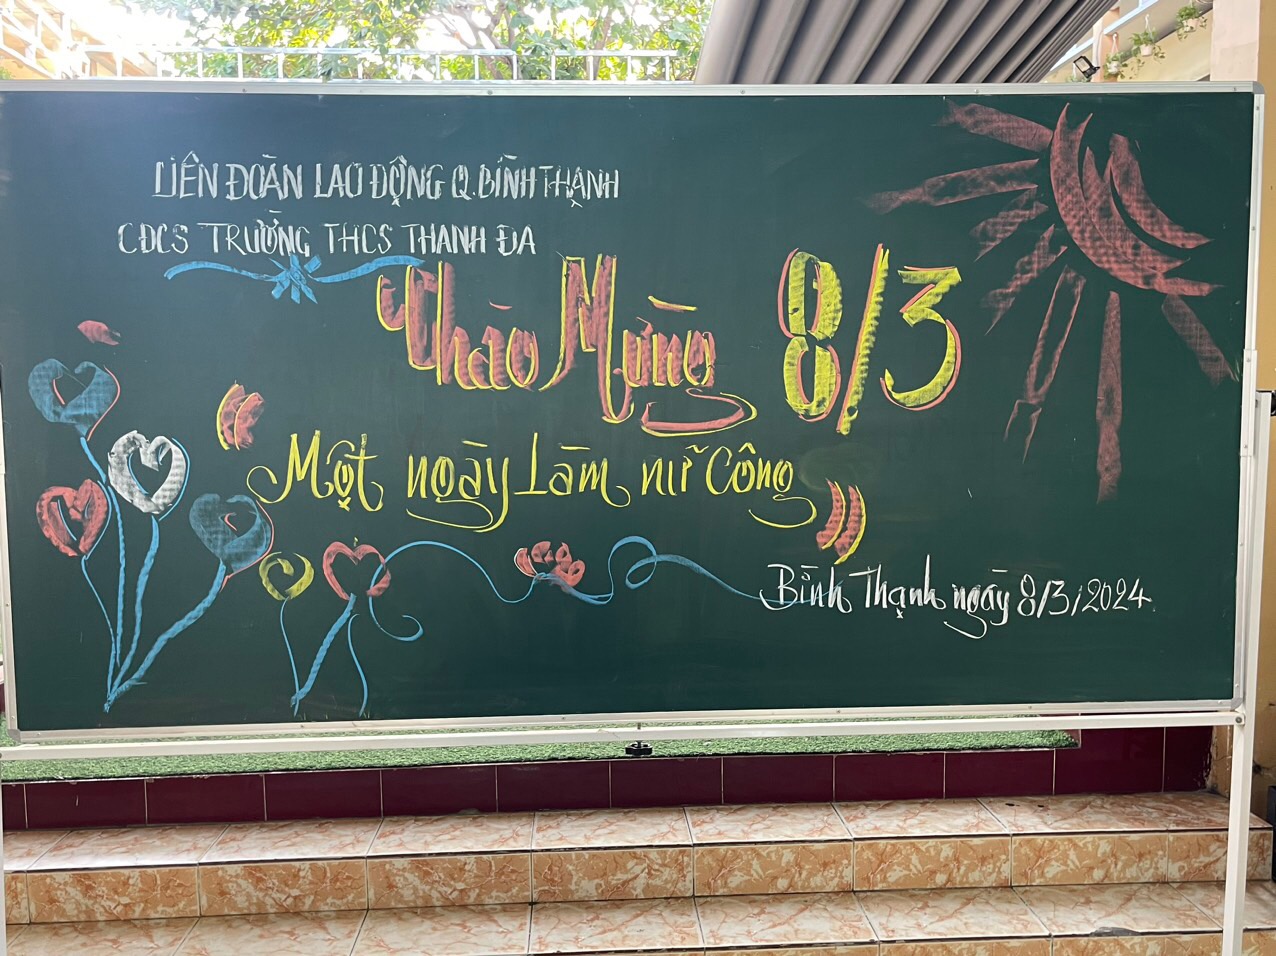 LIÊN ĐOÀN LAO ĐỘNG Q.BÌNH THẠNH
CĐCS TRƯỜNG THCS THANH ĐA
Chào Mừng 8/3
"Một ngày Làm nữ Công"
Bình Thạnh ngày 8/3/2024